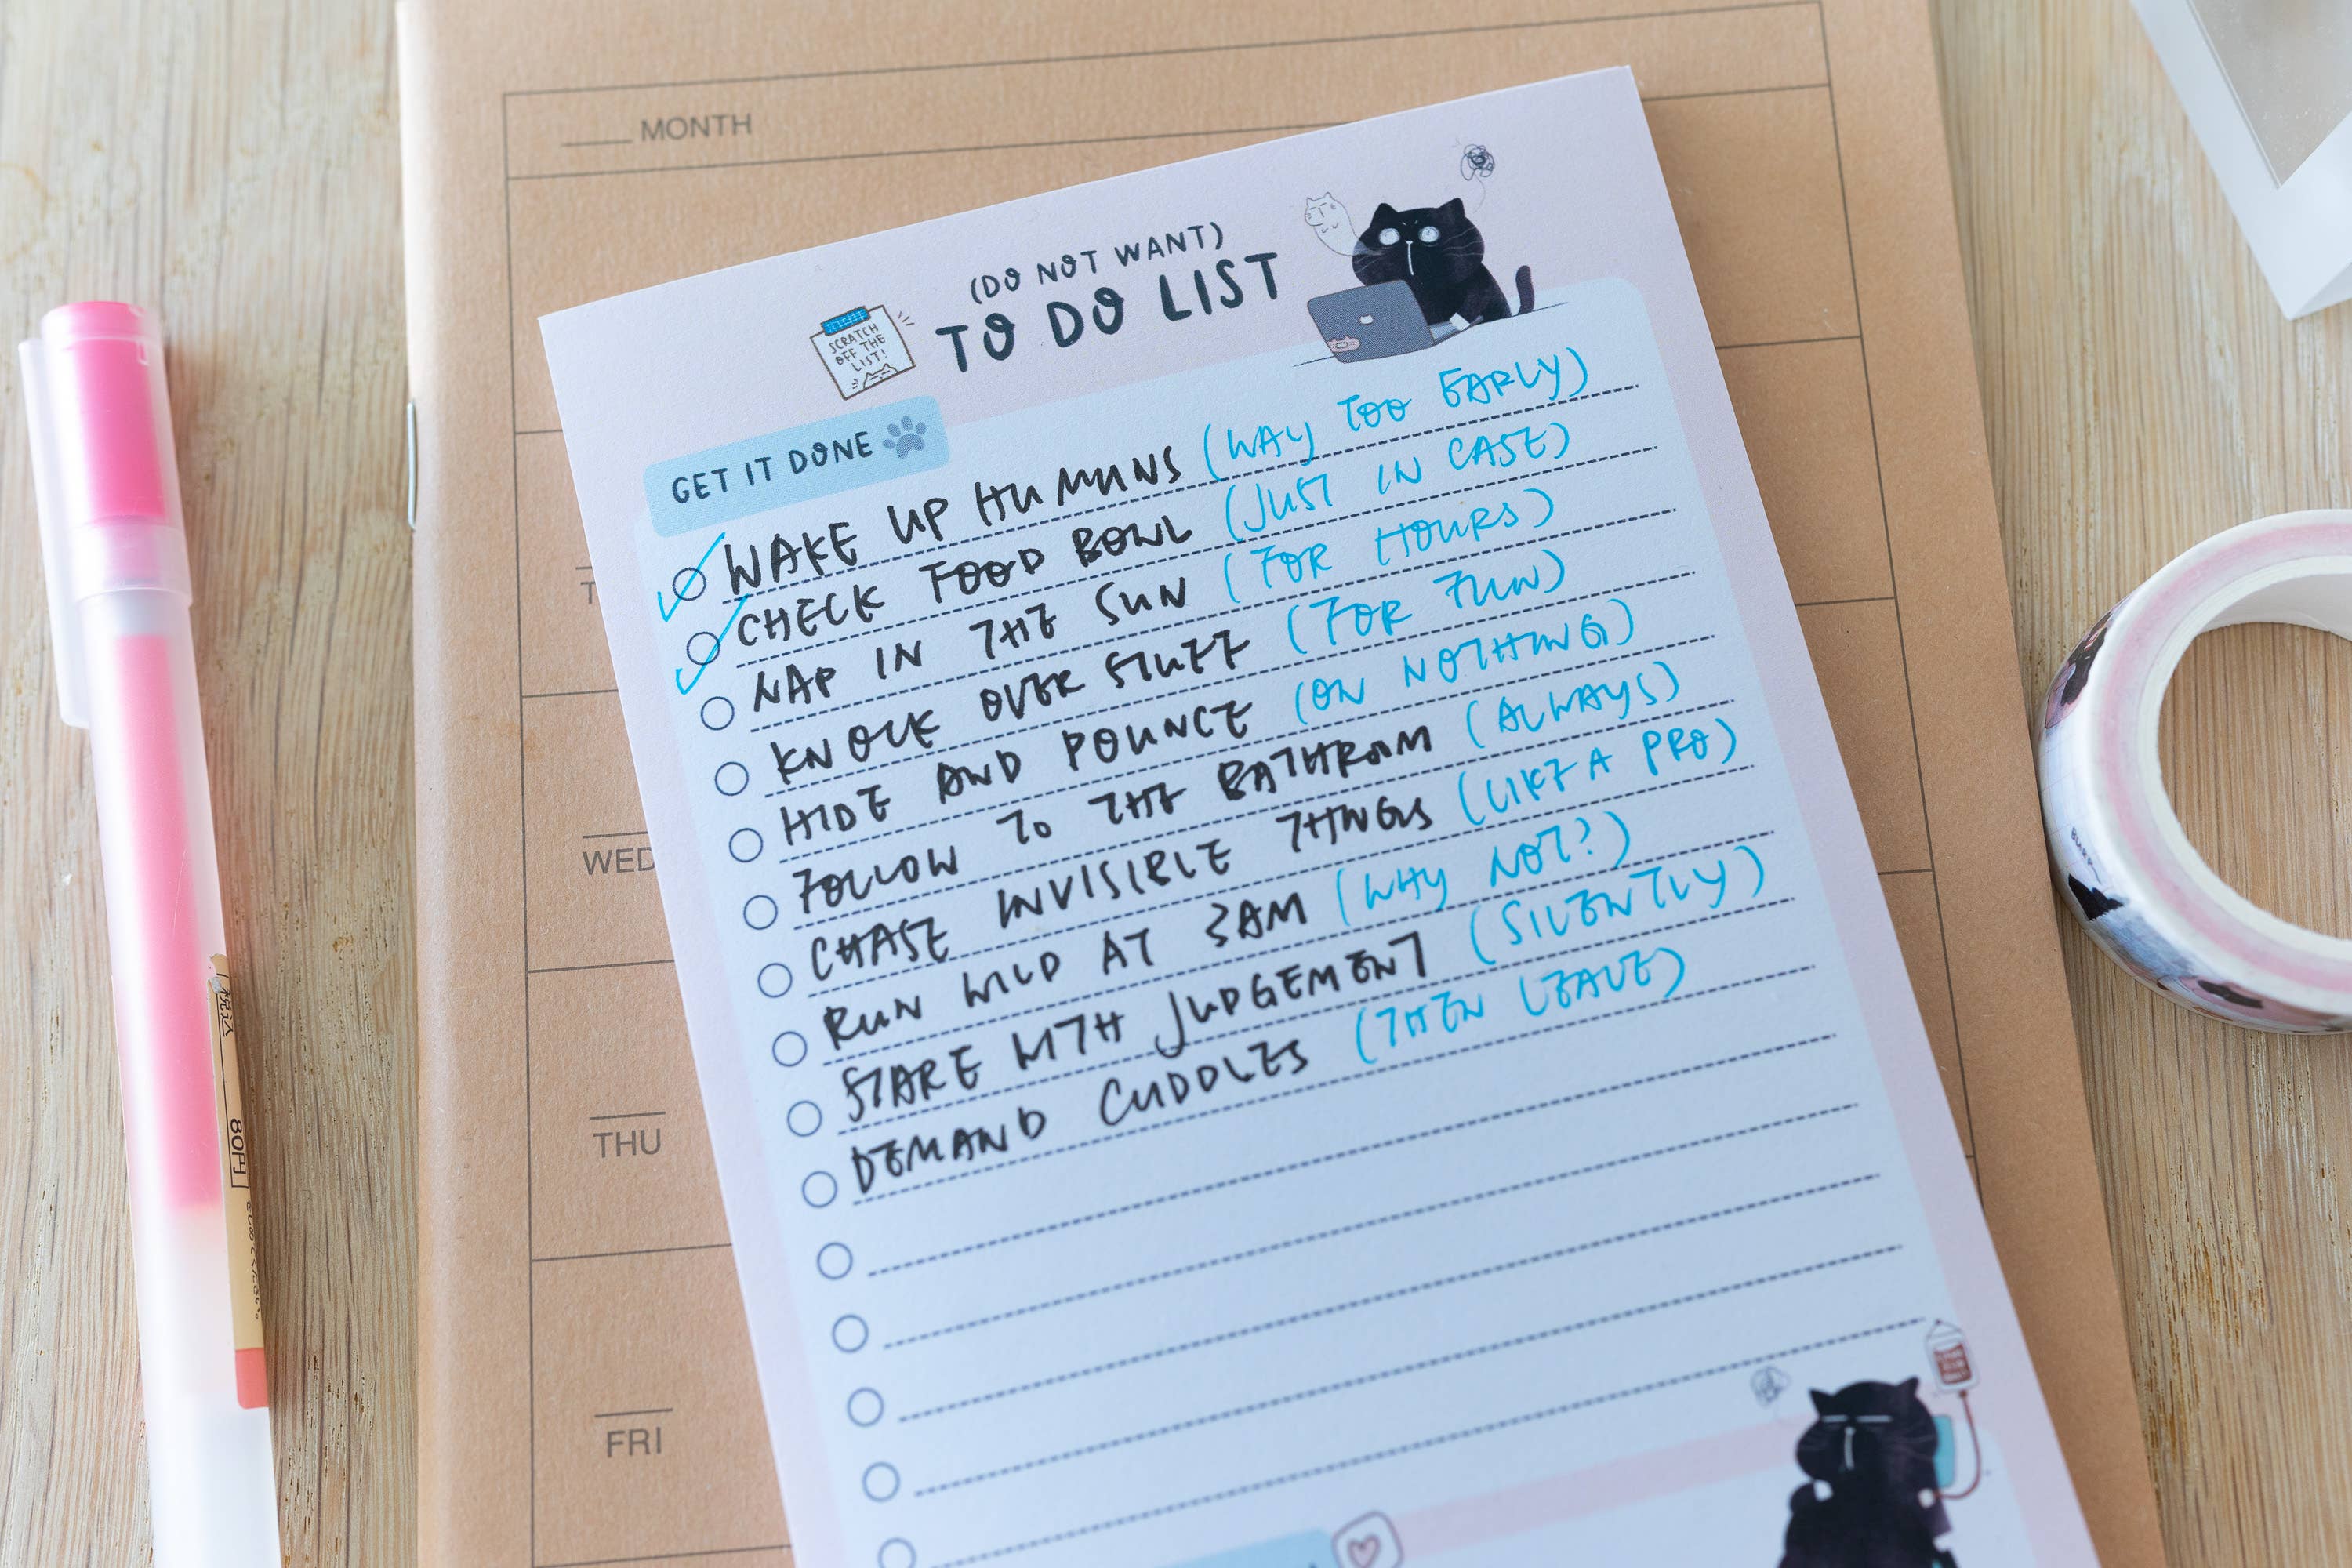 MONTH
(DO NOT WANT)
TO DO LIST
SCRATCH
OFF THE
LIST!
GET IT DONE
WAKE UP HUMANS (WAY TOO EARLY)
CHECK FOOD BOWL (JUST IN CASE)
NAP IN THE SUN (FOR HOURS)
KNOCK OVER STUFF (FOR FUN)
HIDE AND POUNCE (ON NOTHING)
FOLLOW TO THE BATHROOM (ALWAYS)
CHASE INVISIBLE THINGS (LIKE A PRO)
RUN WILD AT 3AM (WHY NOT?)
STARE WITH JUDGEMENT (SILENTLY)
DEMAND CUDDLES (THEN LEAVE)
T
WED
THU
FRI
80円